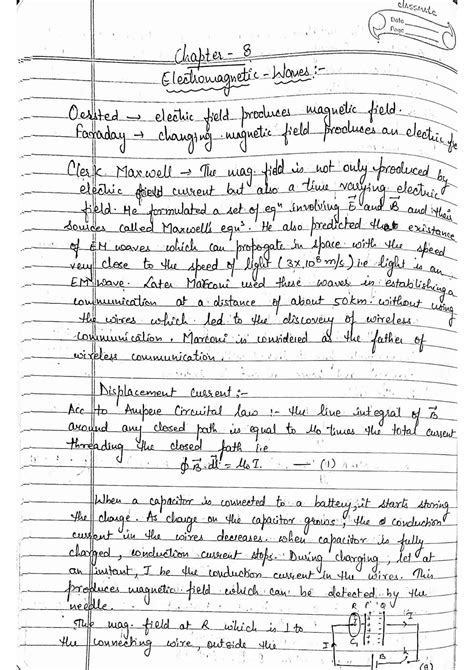 classmate
Date
Page
Chapter - 8
Electromagnetic - Waves :-
Oersted → electric field produces magnetic field.
Faraday → changing magnetic field produces an electric fe
Clerk Maxwell → The mag. field is not only produced by
electric field current but also a time varying electric
field. He formulated a set of eqⁿ involving E⃗ and B⃗ and their
sources called Maxwells eqⁿˢ. He also predicted that existance
of EM waves which can propogate in space with the speed
very close to the speed of light (3x10⁸ m/s) ie light is an
EM wave. Later Marconi used these waves in establishing a
communication at a distance of about 50km. without using
the wires which led to the discovery of wireless
communication. Marconi is considered as the father of
wireless communication.
Displacement Current :-
Acc to Ampere Circuital law :- the line integral of B⃗
around any closed path is equal to μ₀ times the total current
threading the closed path i.e
∮ B⃗. dl⃗ = μ₀ I. — (1)
When a capacitor is connected to a battery, it starts storing
the charge. As charge on the capacitor grows, the conduction
current in the wires decreases. When capacitor is fully
charged, conduction current stops. During charging, let at
an instant, I be the conduction current in the wires. This
produces magnetic field which can be detected by the
needle.
The mag. field at R which is ⊥ to
the connecting wire, outside the
R P Q
I
C₁
I
B
(a)